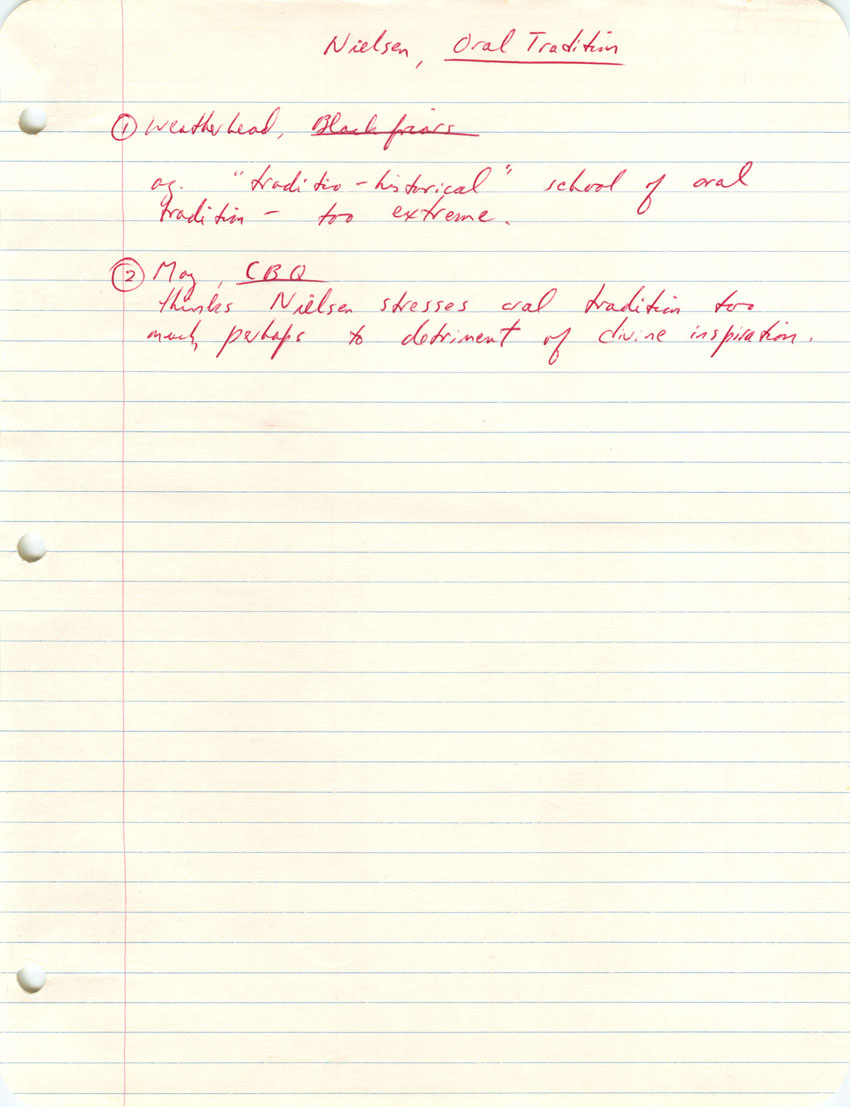 Nielsen, Oral Tradition
① Weatherhead, Blackfriars
ag. "traditio-historical" school of oral
tradition - too extreme.
② May, CBQ
thinks Nielsen stresses oral tradition too
much, perhaps to detriment of divine inspiration.